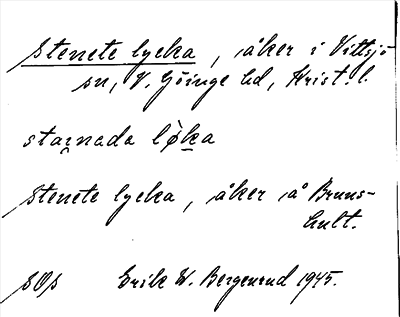 Stenete lycka, åker i Vittsjö
sn, V. Göinge hd, Krist. l.
stai̯nada lø̀ka
Stenete lycka, åker å Bruns-
hult.
SOS Erik W. Bergenrud 1945.